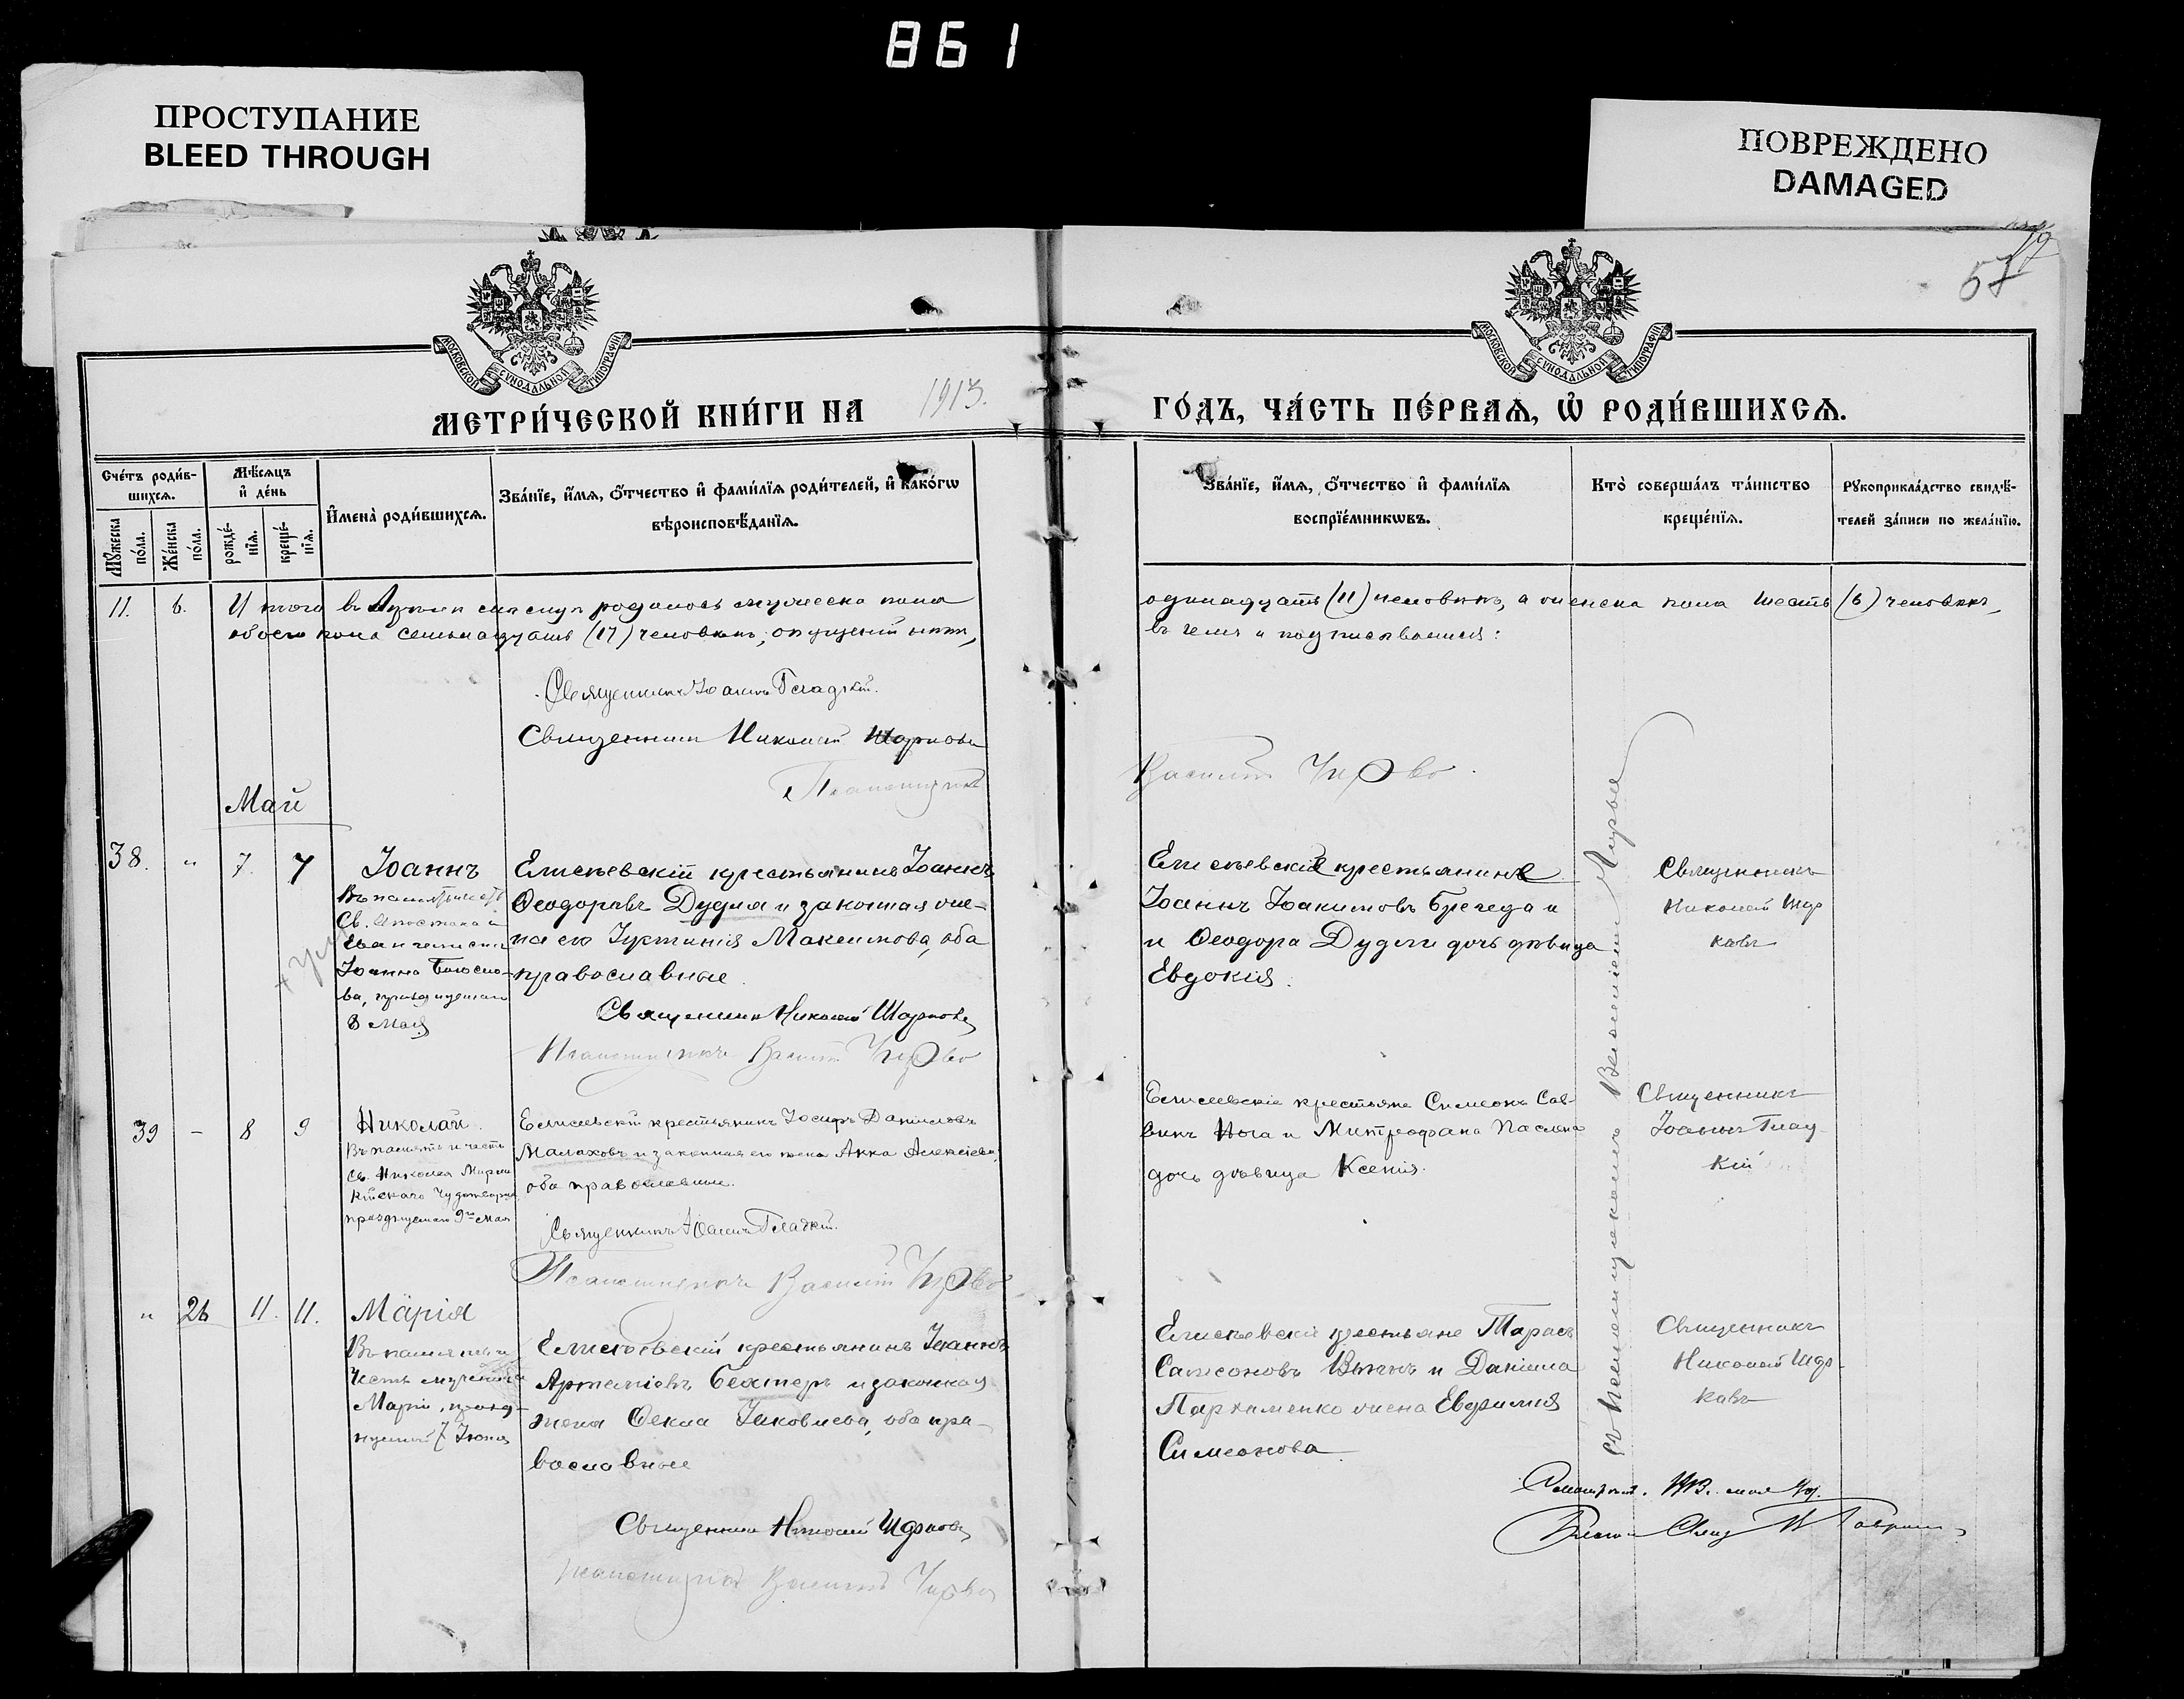 861
ПРОСТУПАНИЕ
BLEED THROUGH
ПОВРЕЖДЕНО
DAMAGED
57
МОСКОВСКОЙ СѴНОДАЛЬНОЙ ТИПОГРАФІИ
МОСКОВСКОЙ СѴНОДАЛЬНОЙ ТИПОГРАФІИ
МЕТРИ́ЧЕСКОЙ КНИ́ГИ НА 1913. ГО́ДЪ, ЧА́СТЬ ПЕ́РВАѦ, Ѡ҆ РОДИ́ВШИХСѦ.
Сче́тъ роди́в-
шихсѧ.
Мꙋ́жеска по́ла.
Же́нска по́ла.
Мѣ́сѧцъ
и҆ де́нь
рожде́-
нїѧ.
креще́-
нїѧ.
И҆мена̀ роди́вшихсѧ.
Зва́нїе, и҆́мѧ, ѻ҆́тчество и҆ фами́лїѧ роди́телей, и҆ како́гѡ
вѣроисповѣ́данїѧ.
Зва́нїе, и҆́мѧ, ѻ҆́тчество и҆ фами́лїѧ
воспрїе́мникѡвъ.
Кто̀ соверша́лъ та́инство
креще́нїѧ.
Рꙋкоприкла́дство свидѣ́-
телей за́писи по жела́нїю.
11. 6. Итого въ Апрѣлѣ мѣсяцѣ родилось мужеска пола одинадцать (11) человѣкъ, а женска пола шесть (6) человѣкъ,
обоего пола семьнадцать (17) человѣкъ; въ чемъ и подписываемся:
Священникъ Іоаннъ Гладкій.
Священникъ Николай Шарковъ
Псаломщикъ Василій
Май
38. " 7. 7 Іоаннъ
Въ память и честь
Св. Апостола и
Евангелиста
Іоанна Богосло-
ва, празднуемаго
8 Мая
Елисѣевскій крестьянинъ Іоаннъ
Ѳеодоровъ Дудля и законная же-
на его Іустинія Максимова, оба
православные
Священникъ Николай Шарковъ
Псаломщикъ Василій
Елисѣевскіе крестьяне
Іоаннъ Іоакимовъ Брегеда и
и Ѳеодора Дудли дочь дѣвица
Евдокія.
Священникъ
Николай Шар
ковъ
39 – 8 9 Николай.
Въ память и честь
Св. Николая Мирли
кійскаго Чудотворца
празднуемаго 9го Мая
Елисеевскій крестьянинъ Іосифъ Даниловъ
Малаховъ и законная его жена Анна Алексіева,
оба православные.
Священникъ Іоаннъ Гладкій.
Псаломщикъ Василій
Елисеевскіе крестьяне Симеонъ Сав-
винъ Нога и Митрофана Паслена
дочь дѣвица Ксенія.
Священникъ
Іоаннъ Глад
кій
" 26 11. 11. Марія
Въ память и
честь мученицы
Маріи, празд-
нуемой 7 Іюня
Елисѣевскій крестьянинъ Іоаннъ
Артеміевъ и законная
жена Ѳекла Іаковлева, оба пра-
вославные
Священникъ Николай Шарковъ
Псаломщикъ Василій
Елисѣевскіе крестьяне Тарасъ
Самсоновъ и Даніила
Пархоменко жена Евфимія
Симеонова.
Священникъ
Николай Шар-
ковъ